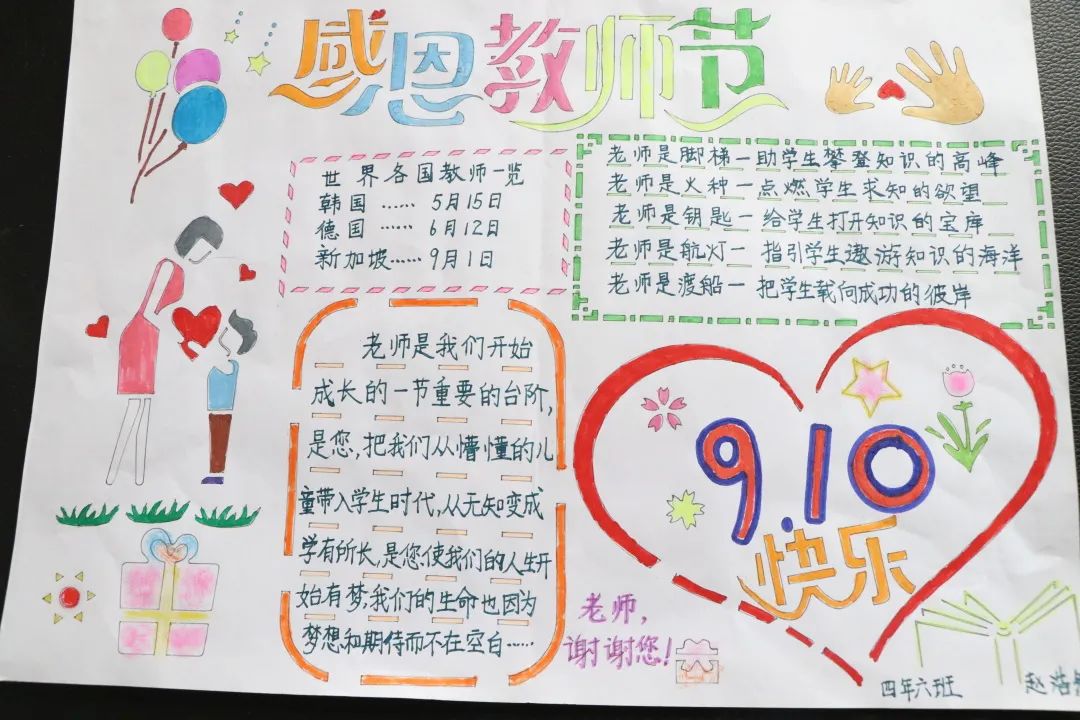 感恩教师节
世界各国教师一览
韩国 …… 5月15日
德国 …… 6月12日
新加坡…… 9月1日
老师是脚梯一助学生攀登知识的高峰
老师是火种一点燃学生求知的欲望
老师是钥匙一给学生打开知识的宝库
老师是航灯一指引学生遨游知识的海洋
老师是渡船一把学生载向成功的彼岸
老师是我们开始
成长的一节重要的台阶,
是您,把我们从懵懂的儿
童带入学生时代,从无知变成
学有所长,是您使我们的人生开
始有梦,我们的生命也因为
梦想和期待而不在空白……
9.10
快乐
老师,
谢谢您!
四年六班
赵浩